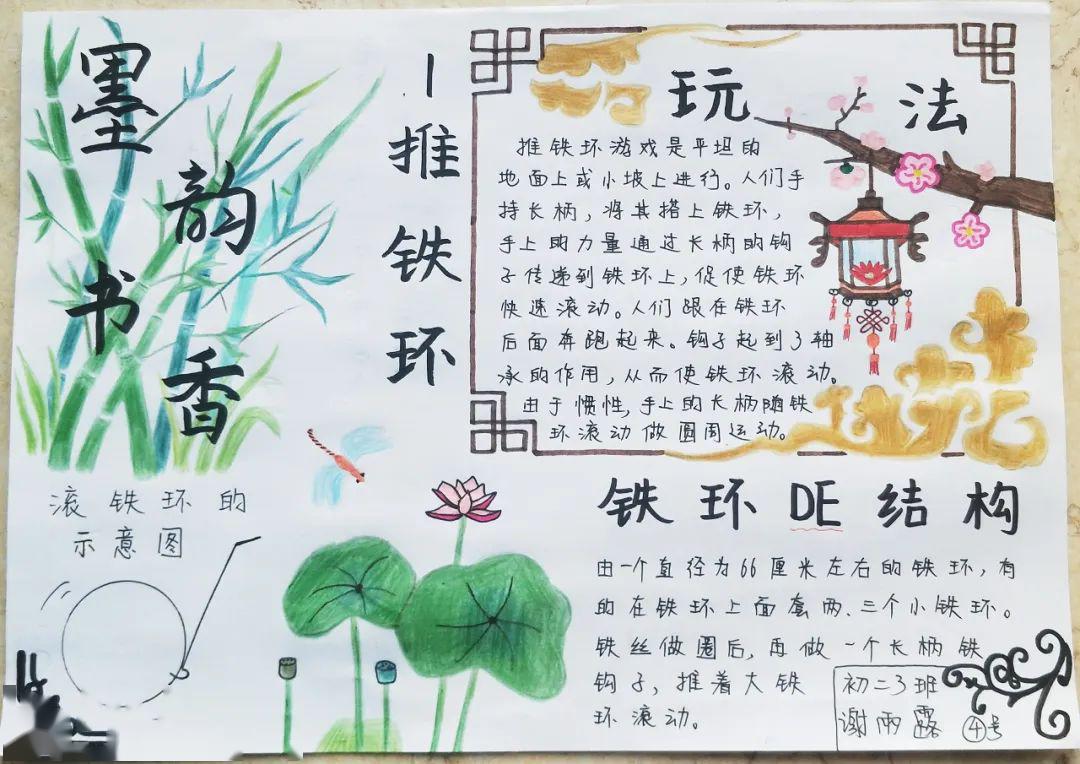 墨韵书香
-推铁环
玩法
推铁环游戏是平坦的
地面上或小坡上进行。人们手
持长柄，将其搭上铁环，
手上的力量通过长柄的钩
子传递到铁环上，促使铁环
快速滚动。人们跟在铁环
后面奔跑起来。钩子起到了轴
承的作用，从而使铁环滚动。
由于惯性，手上的长柄随铁
环滚动做圆周运动。
滚铁环的
示意图
铁环DE结构
由一个直径为66厘米左右的铁环，有
的在铁环上面套两、三个小铁环。
铁丝做圈后，再做一个长柄铁
钩子，推着大铁
环滚动。
初二3班
谢雨露 ④号